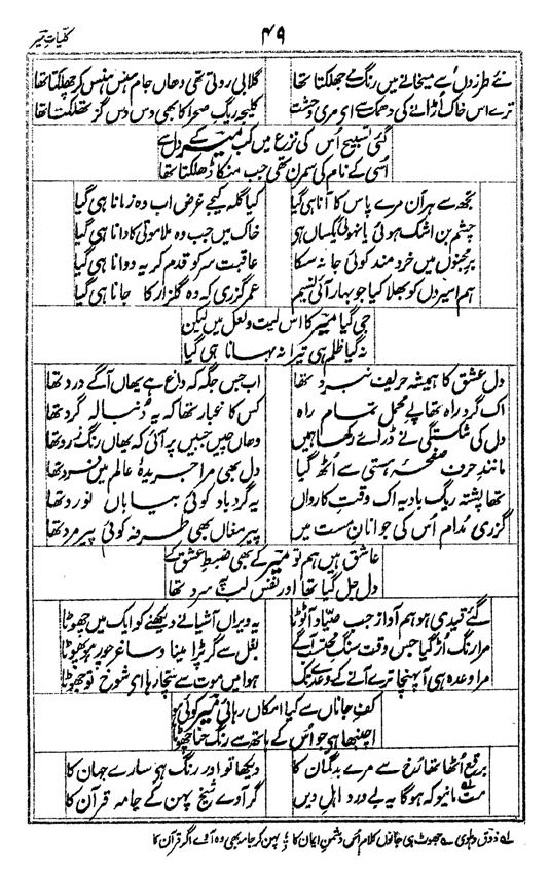 کلیاتِ میر
۴۹
نئے طرزوں سے میخانے میں رنگِ مے جھلکتا تھا گلابی روتی تھی وھاں جام ہنس ہنس کر چھلکتا تھا
ترے اس خاک اڑانے کی دھمک سے ای مری وحشت کلیجہ ریگِ صحرا کا بھی دس دس گز تھلکتا تھا
گئی تسبیح اُس کی نزع میں کب میر کے دل سے
اُسی کے نام کی سمرن تھی جب منکا ڈھلکتا تھا
تجھ سے ہر آن مرے پاس کا آنا ہی گیا کیا گلہ کیجے غرض اب وہ زمانا ہی گیا
چشم بن اشک ہوئی یا نہوئی یکساں ہی خاک میں جب وہ ملا موتی کا دانا ہی گیا
برِ مجنوں میں خردمند کوئی جا نہ سکا عاقبت سر کو قدم کر یہ دوانا ہی گیا
ہم اسیروں کو بھلا کیا جو بہار آئی نسیم عمر گزری کہ وہ گلزار کا جانا ہی گیا
جی گیا میر کا اس لیت و لعل میں لیکن
نہ گیا ظلم ہی تیرا نہ بہانا ہی گیا
دل عشق کا ہمیشہ حریفِ نبرد تھا اب جس جگہ کہ داغ ہے یھاں آگے درد تھا
اک گرد راہ تھا پے محمل تمام راہ کس کا غبار تھا کہ یہ دُنبالہ گرد تھا
دل کی شکستگی نے ڈرائے رکھا ہمیں وھاں چیں جبیں پر آئی کہ یھاں رنگ زرد تھا
مانندِ حرف صفحۂ ہستی سے اُٹھ گیا دل بھی مرا جریدۂ عالم میں فرد تھا
تھا پشتہ ریگ بادیہ اک وقت کارواں یہ گرد باد کوئی بیاباں نورد تھا
گزری مُدام اُس کی جوانانِ مست میں پیرِ مغاں بھی طرفہ کوئی پیر مرد تھا
عاشق ہیں ہم تو میر کے بھی ضبطِ عشق کے
دل جل گیا تھا اور نفس لب پہ سرد تھا
گئے قیدی ہو ہم آواز جب صیّاد آ لُوٹا یہ ویراں آشیانے دیکھنے کو ایک میں چھوٹا
مرا رنگ اُڑ گیا جس وقت سنگ محتسب آگے بغل سے گر پڑا مینا و ساغر چور ہو پھوٹا
مرا وعدہ ہی آ پہنچا ترے آنے کے وعدے تک ہوا میں موت سے سچا رہا ای شوخ تو جھوٹا
کفِ جاناں سے کیا امکاں رہائی میر کوئی ہو
اچنبھا ہی جو اُس کے ہاتھ سے رنگِ حنا چھوٹا
برقع اُٹھا تھا رخ سے مرے بدگمان کا دیکھا تو اور رنگ ہی سارے جہان کا
مت مانیو کہ ہوگا یہ بے درد اہلِ دیں گر آوے شیخ پہن کے جامہ قرآن کا
لے ذوق دہلوی ے جھوٹ ہی جانوں کلام اُس دشمنِ ایمان کا ÷ پہن کر جامہ بھی وہ آئے اگر قرآن کا